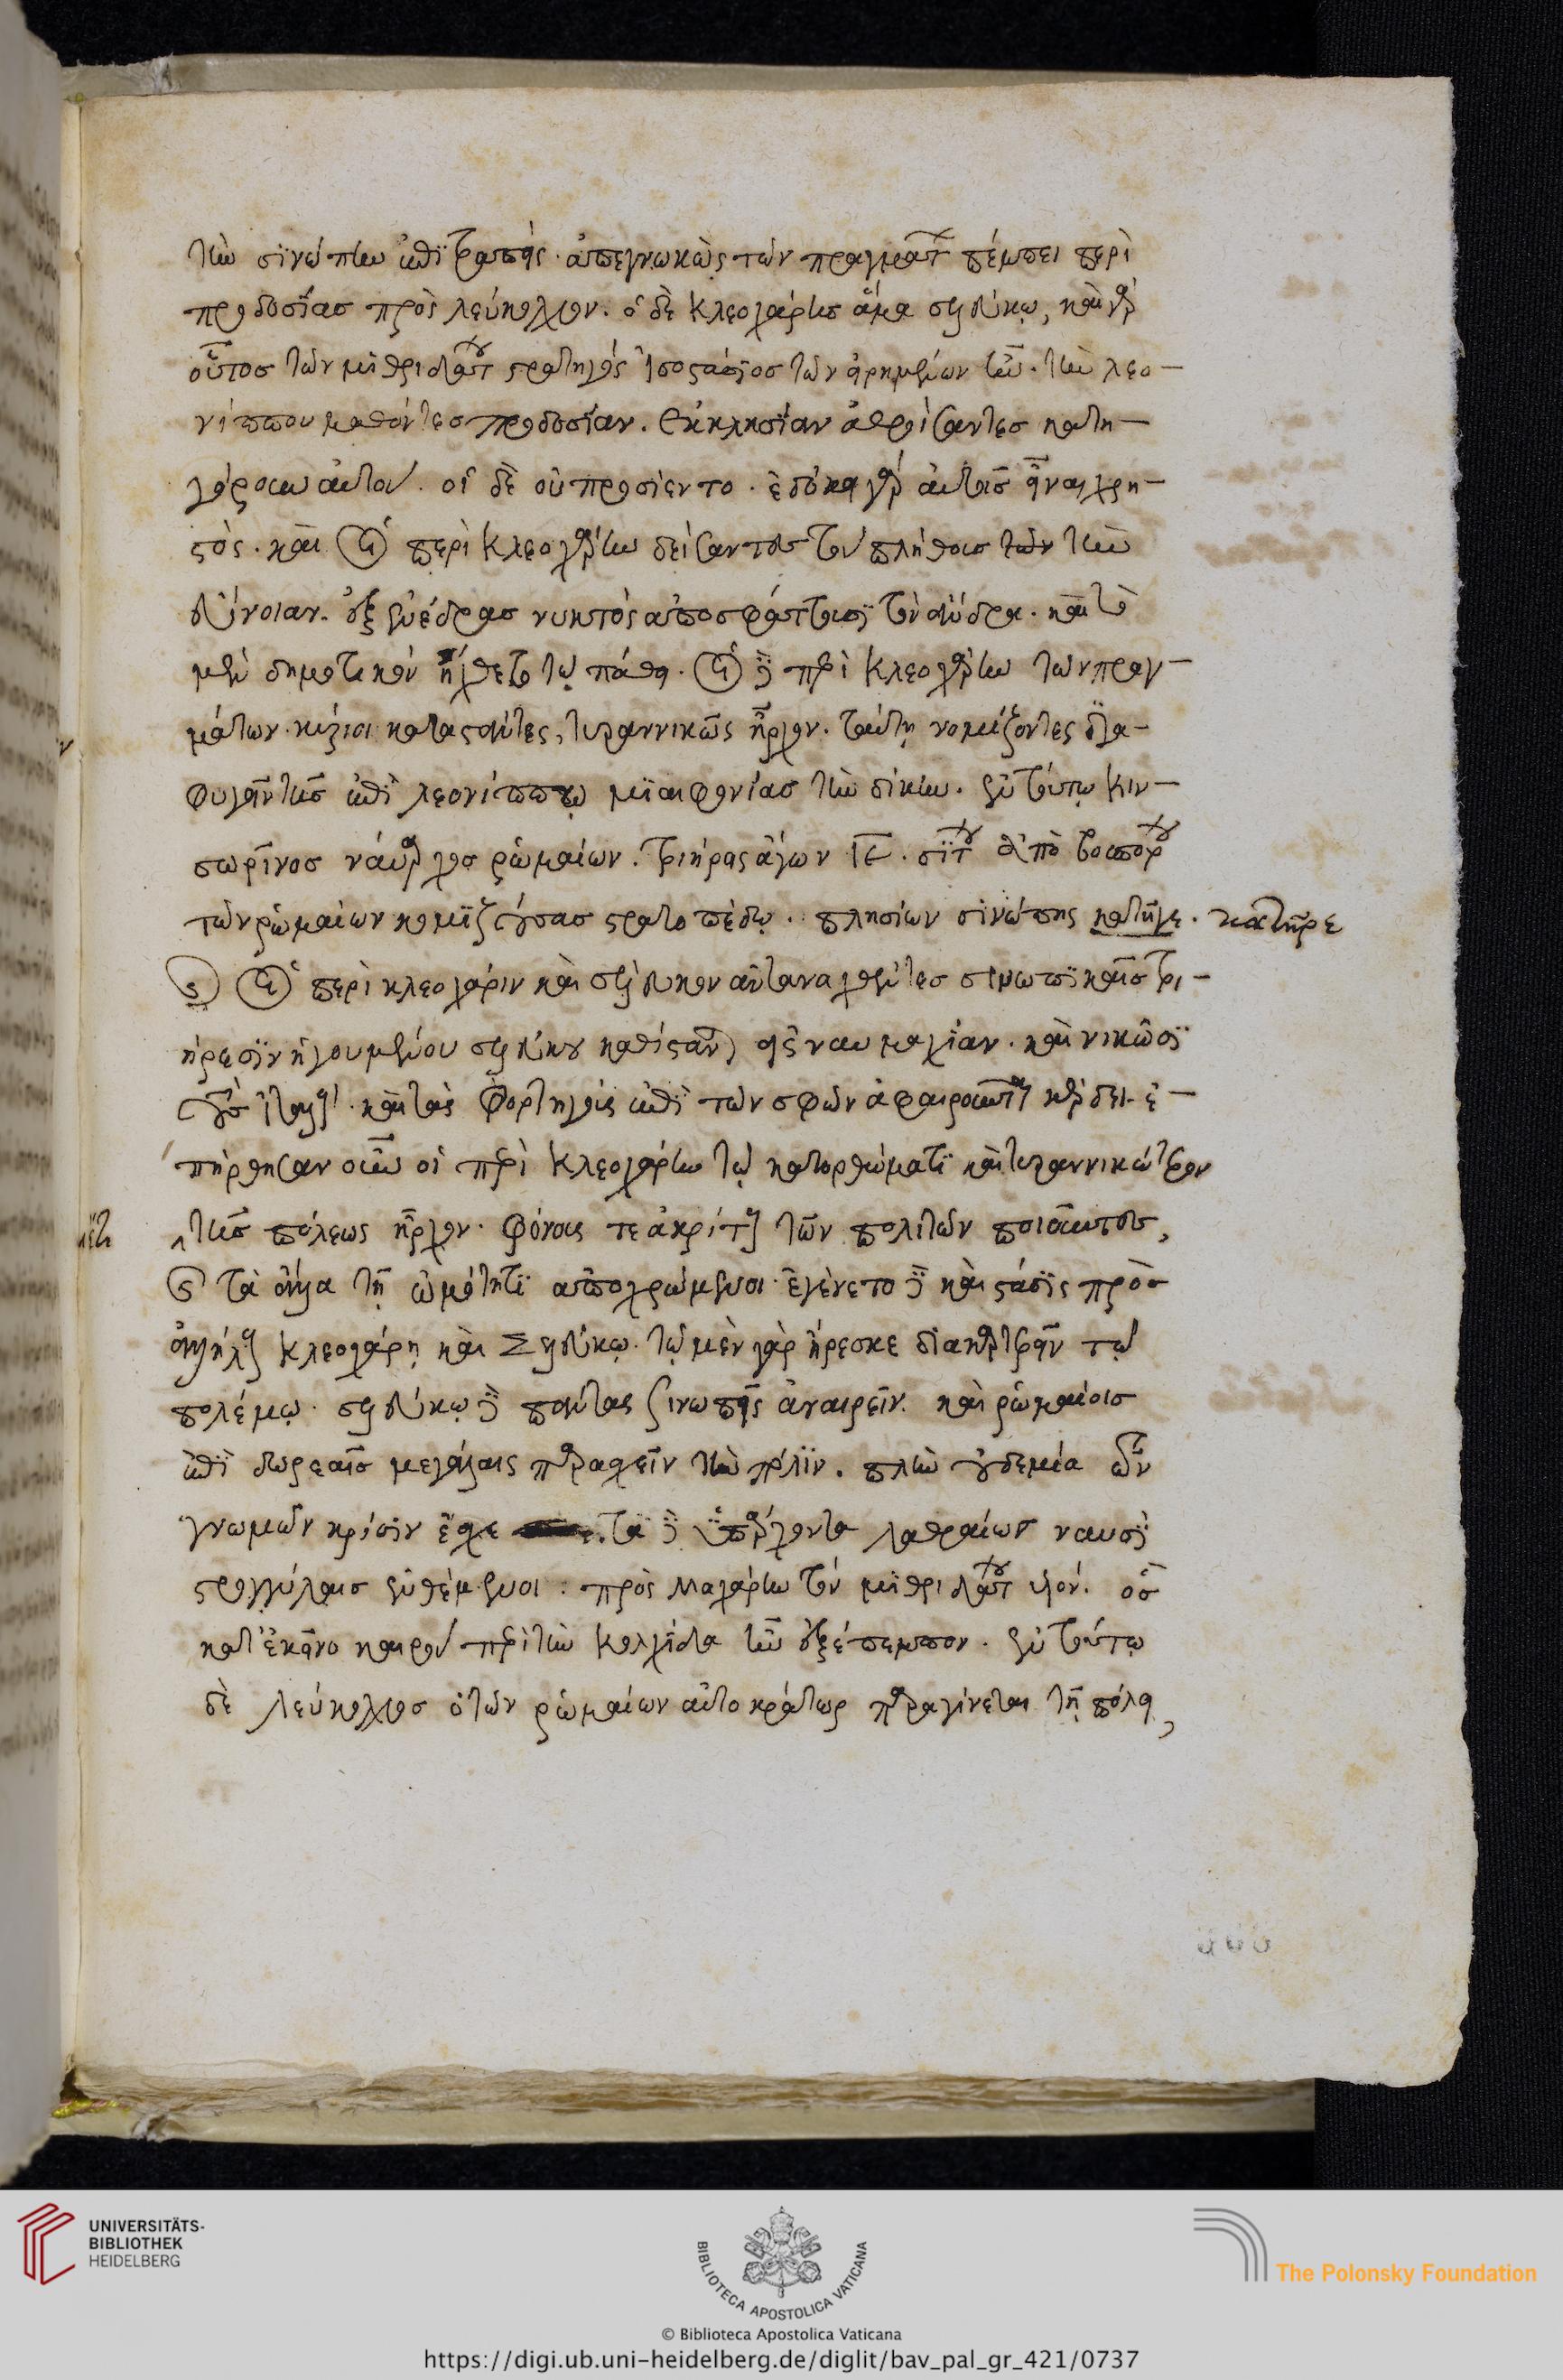 τὴν σινώπην ἐπιτραπεὶς. ἀπεγνωκὼς τῶν πραγμάτου πέμπει περὶ
προδοσίας πρὸς λεύκολλον. ὁ δὲ κλεοχάρης ἅμα σελεύκῳ, καὶ γὰρ
οὗτος τῶν μιθριδάτου στρατηγὸς ἰσοστάσιος τῶν εἰρημένων ἦν. τὴν λεο-
νίππου μαθόντες προδοσίαν. ἐκκλησίαν ἀθροίσαντες κατη-
γόρουν αὐτοῦ. οἱ δὲ οὐ προσίεντο. ἐδόκει γὰρ αὐτοῖς εἶναι χρη-
στὸς. καὶ οἱ περὶ κλεοχάρην δείσαντες τοῦ πλήθους τῶν τὴν
εὔνοιαν. ἐξ ἐνέδρας νυκτὸς ἀποσφάττουσι τὸν ἄνδρα. καὶ τὸ
μὲν δημοτικὸν ἤχθετο τῷ πάθει. οἱ δὲ περὶ κλεοχάρην τῶν πραγ-
μάτων κύριοι καταστάντες, τυραννικῶς ἦρχον. ταύτῃ νομίζοντες δια-
φυγεῖν τῆς ἐπὶ λεονίππῳ μιαιφονίας τὴν δίκην. ἐν τούτῳ κιν-
σωρῖνος ναύαρχος ῥωμαίων. τριήρεις ἄγων ιε. σίτου ἀπὸ βοσπόρου
τῶν ῥωμαίων κομιζούσας στρατοπέδῳ. πλησίων σινώπης κατῆγε. κατῆρε
οἱ περὶ κλεοχάριν καὶ σέλευκον ἀνταναχθέντες σινωπικαῖς τρι-
ήρεσιν ἡγουμένου σελεύκου καθίστανται εἰς ναυμαχίαν. καὶ νικῶσι
τοὺς ἰταλοὺς. καὶ τὰς φορτηγοὺς ἐπὶ τῶν σφῶν ἀφαιροῦνται κέρδει. ἐ-
πήρθησαν οὖν οἱ περὶ κλεοχάρην τῷ κατορθώματι καὶ τυραννικώτερον
τῆς πόλεως ἦρχον. φόνους τε ἀκρίτους τῶν πολιτῶν ποιοῦντες,
καὶ τὰ ἄλλα τῇ ὠμότητι ἀποχρώμενοι. ἐγένετο δὲ καὶ στάσις πρὸς
ἀλλήλους κλεοχάρῃ καὶ Σελεύκῳ. τῷ μὲν γὰρ ἤρεσκε διακαρτερεῖν τῷ
πολέμῳ. σελεύκῳ δὲ πάντας σινωπεῖς ἀναιρεῖν. καὶ ῥωμαίοις
ἐπὶ δωρεαῖς μεγάλαις παρασχεῖν τὴν πόλιν. πλὴν οὐδεμία τῶν
γνωμῶν κρίσιν ἔσχε τὰ δὲ ὑπάρχοντα λαθραίως ναυσὶ
στρογγύλαις ἐνθέμενοι: πρὸς μαχάρην τὸν μιθριδάτου υἱόν. ὃς
κατ' ἐκεῖνο καιροῦ περὶ τὴν κολχίδα ἦν ἐξέπεμπον. ἐν τούτῳ
δὲ λεύκολλος ὁ τῶν ῥωμαίων αὐτοκράτωρ παραγίνεται τῇ πόλει,
UNIVERSITÄTS-
BIBLIOTHEK
HEIDELBERG
BIBLIOTECA APOSTOLICA VATICANA
The Polonsky Foundation
© Biblioteca Apostolica Vaticana
https://digi.ub.uni-heidelberg.de/diglit/bav_pal_gr_421/0737